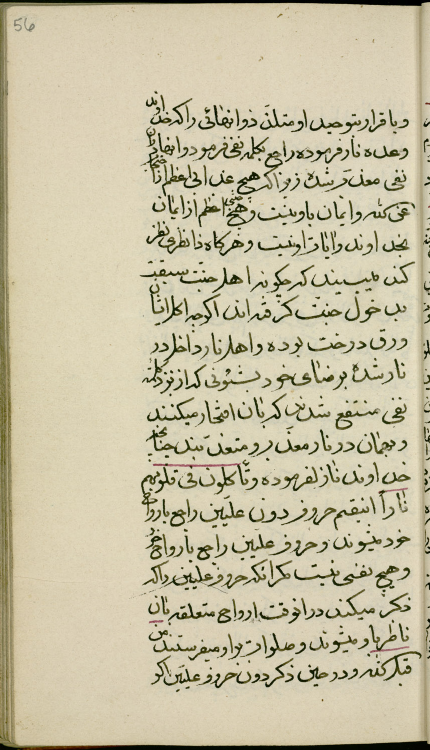 56
و باقرار بتوحید او متلذذ و انهائی را که خداوند
وعده نار فرموده راجع بکلمه نفی فرموده و انهادر
نفی معذب شده زیرا که هیچ عذابی اعظم از
نمی‌کند و ایمان باو نیست و هیچ جنتی اعظم از ایمان
بخداوند و ایات او نیست و هرگاه ناظری نظر
کند میبیند که چگونه اهل جنت سبقت
بدخول جنت گرفته اند اگر چه
ورق درخت بوده و اهل نار داخل در
نار شده برضای خود بشئونی که از نزد کلمه
نفی منتفع شدند که بان افتخار میکنند
و بهمان در نار معذب و متعذبند چنانچه
خداوند نازل فرموده و تاکلون فی قلوبهم
نارا حروف دون علیین راجع بارواح
خود میشوند و حروف علیین راجع بارواح خود
و هیچ نفسی نیست مگر انکه حروف علیین را که
ذکر میکند در انوقت ارواح متعلقه بان
ناظر باو میشوند و صلوات براو میفرستند من
قبل الله و در حین ذکر دون حروف علیین اگر